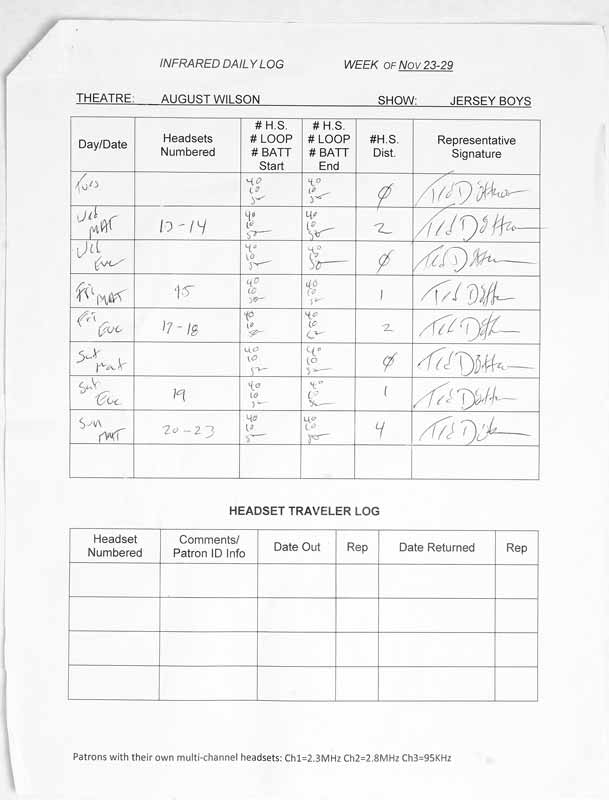 INFRARED DAILY LOG WEEK OF NOV 23-29
THEATRE: AUGUST WILSON SHOW: JERSEY BOYS
Day/Date Headsets Numbered # H.S. # LOOP # BATT Start # H.S. # LOOP # BATT End #H.S. Dist. Representative Signature
Tues 40 10 50 40 10 50 0
Wed MAT 13-14 40 10 50 40 10 50 2
Wed Eve 40 10 50 40 10 50 0
Fri MAT 15 40 10 50 40 10 50 1
Fri Eve 17-18 40 10 50 40 10 50 2
Sat Mat 40 10 50 40 10 50 0
Sat Eve 19 40 10 50 40 10 50 1
Sun MAT 20-23 40 10 50 40 10 50 4
HEADSET TRAVELER LOG
Headset Numbered Comments/ Patron ID Info Date Out Rep Date Returned Rep
Patrons with their own multi-channel headsets: Ch1=2.3MHz Ch2=2.8MHz Ch3=95KHz